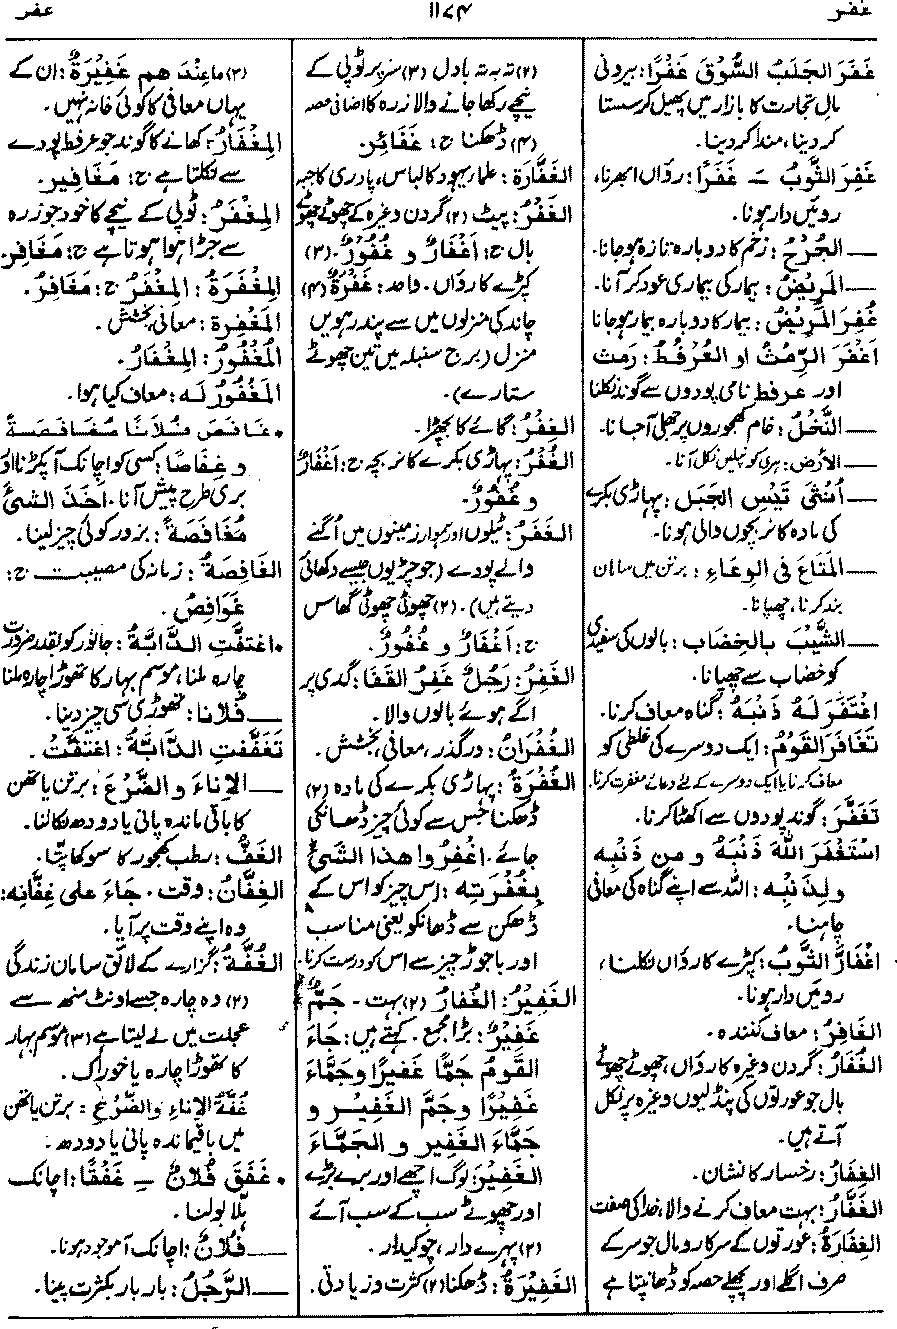 غفر
١١٧٤
غفر
غَفَرَ الجَلَبُ السُّوْقَ غَفْرًا: بیرونی
مالِ تجارت کا بازار میں پھیل کر سستا
کر دینا، مندا کر دینا۔
غَفِرَ الثَّوْبُ ــَـ غَفَرًا: رؤاں ابھرنا،
روئیں دار ہونا۔
ــــ الجُرْحُ: زخم کا دوبارہ تازہ ہو جانا۔
ــــ المَرِيْضُ: بیمار کی بیماری عود کر آنا۔
غُفِرَ المَرِيْضُ: بیمار کا دوبارہ بیمار ہو جانا
اَغْفَرَ الرِّمْثُ او العُرْفُطُ: رمث
اور عرفط نامی پودوں سے گوند نکلنا
ــــ النَّخْلُ: خام کھجوروں پر جھلی آجانا۔
ــــ الأرْضُ: ہری کونپلیں نکل آنا۔
ــــ اُنْثٰى تَيْسِ الجَبَلِ: پہاڑی بکرے
کی مادہ کا نر بچوں والی ہونا۔
ــــ المَتَاعَ فِى الوِعَاءِ: برتن میں سامان
بند کرنا، چھپانا۔
ــــ الشَّيْبَ بِالخِضَابِ: بالوں کی سفیدی
کو خضاب سے چھپانا۔
اغْتَفَرَ لَهُ ذَنْبَهُ: گناہ معاف کرنا۔
تَغَافَرَ القَوْمُ: ایک دوسرے کی غلطی کو
معاف کرنا یا ایک دوسرے کے لئے دعائے مغفرت کرنا۔
تَغَفَّرَ: گوند پودوں سے اکٹھا کرنا۔
اسْتَغْفَرَ اللّٰهَ ذَنْبَهُ و مِن ذَنْبِهِ
و لِذَنْبِهِ: اللہ سے اپنے گناہ کی معافی
چاہنا۔
اغْفَارَّ الثَّوْبُ: کپڑے کا رؤاں نکلنا،
روئیں دار ہونا۔
الغَافِرُ: معاف کنندہ۔
الغُفَارُ: گردن وغیرہ کا رؤاں، چھوٹے چھوٹے
بال جو عورتوں کی پنڈلیوں وغیرہ پر نکل
آتے ہیں۔
الغِفَارُ: رخسار کا نشان۔
الغَفَّارُ: بہت معاف کرنے والا، خدا کی صفت
الغِفَارَةُ: عورتوں کے سر کا رومال جو سر کے
صرف اگلے اور پچھلے حصہ کو ڈھانپتا ہے
(٢) تہ بہ تہ بادل (٣) سر پر ٹوپی کے
نیچے رکھا جانے والا زرہ کا اضافی حصہ
(٤) ڈھکنا ج: غَفَائِرُ۔
الغَفَّارَة: علماءِ یہود کا لباس، پادری کا جبہ
الغَفْرُ: پیٹ (٢) گردن وغیرہ کے چھوٹے چھوٹے
بال ج: اَغْفَارٌ و غُفُوْرٌ. (٣)
کپڑے کا رؤاں۔ واحد: غَفْرَةٌ (٤)
چاند کی منزلوں میں سے پندرہویں
منزل (برج سنبلہ میں تین چھوٹے
ستارے)۔
الغِفْرُ: گائے کا بچھڑا۔
الغُفْرُ: پہاڑی بکرے کا نر بچہ ج: اَغْفَارٌ
و غُفُوْرٌ۔
الغَفَرُ: ٹیلوں اور ہموار زمینوں میں اُگنے
والے پودے (جو چڑیوں جیسے دکھائی
دیتے ہیں)۔ (٢) چھوٹی چھوٹی گھاس
ج: اَغْفَارٌ و غُفُوْرٌ۔
الغَفِرُ: رَجُلٌ غَفِرُ القَفَا: گدی پر
اگے ہوئے بالوں والا۔
الغُفْرَانُ: درگذر، معافی، بخشش۔
الغُفْرَةُ: پہاڑی بکرے کی مادہ (٢)
ڈھکنا جس سے کوئی چیز ڈھانکی
جائے۔ اغْفِرُوا هٰذا الشَّىْءَ
بِغُفْرَتِهِ: اس چیز کو اس کے
ڈھکن سے ڈھانکو یعنی مناسب
اور باجوڑ چیز سے اس کو درست کرنا۔
الغَفِيْرُ: الغُفَارُ (٢) بہت۔ جَمٌّ
غَفِيْرٌ: بڑا مجمع۔ کہتے ہیں: جَاءَ
القَوْمُ جَمًّا غَفِيْرًا وجَمَّاءَ
غَفِيْرًا وجَمَّ الغَفِيْرِ و
جَمَّاءَ الغَفِيْرِ و الجَمَّاءَ
الغَفِيْرَ: لوگ اچھے اور برے بڑے
اور چھوٹے سب کے سب آئے
(٢) پہرے دار، چوکیدار۔
الغَفِيْرَةُ: ڈھکنا (٢) کثرت و زیادتی۔
(٣) ماعِنْدَ هم غَفِيْرَةٌ: ان کے
یہاں معافی کا کوئی خانہ نہیں۔
المِغْفَارُ: کھانے کا گوند جو عرفط پودے
سے نکلتا ہے ج: مَغَافِيْر۔
المِغْفَرُ: ٹوپی کے نیچے کا خود جو زرہ
سے جڑا ہوا ہوتا ہے ج: مَغَافِر۔
المِغْفَرَةُ: المِغْفَرُ ج: مَغَافِرُ۔
المَغْفِرة: معافی، بخشش۔
المُغْفُوْرُ: المِغْفَارُ۔
المَغْفُوْرُ لَه: معاف کیا ہوا۔
• غَافَصَ فُلَانًا مُغَافَصَةً
و غِفَاصًا: کسی کو اچانک آپکڑنا اور
بری طرح پیش آنا۔ اَخَذَ الشَّىْءَ
مُغَافَصَةً: بزور کوئی چیز لینا۔
الغَافِصَةُ: زمانہ کی مصیبت ج:
غَوَافِصُ۔
• اغْتَفَّتِ الدَّابَّةُ: جانور کو بقدر ضرورت
چارہ ملنا، موسم بہار کا تھوڑا چارہ ملنا
ــــ فُلَانا: تھوڑی سی چیز دینا۔
تَغَفَّفَتِ الدَّابَّةُ: اغْتَفَّتْ۔
ــــ الإنَاءَ و الضَّرْعَ: برتن یا تھن
کا باقی ماندہ پانی یا دودھ نکالنا۔
الغَفُّ: رطب کھجور کا سوکھا پتا۔
الغِفَّانُ: وقت۔ جَاءَ على غِفَّانِهِ:
وہ اپنے وقت پر آیا۔
الغُفَّةُ: گزارے کے لائق سامان زندگی
(٢) وہ چارہ جسے اونٹ منھ سے
عجلت میں لے لیتا ہے (٣) موسم بہار
کا تھوڑا چارہ یا خوراک۔
غُفَّةُ الإنَاءِ والضَّرْعِ: برتن یا تھن
میں باقی ماندہ پانی یا دودھ۔
• غَفَقَ فُلَانٌ ــِـ غَفْقًا: اچانک
ہلّا بولنا۔
ــــ فُلَانٌ: اچانک آ موجود ہونا۔
ــــ الرَّجُلُ: بار بار بکثرت پینا۔